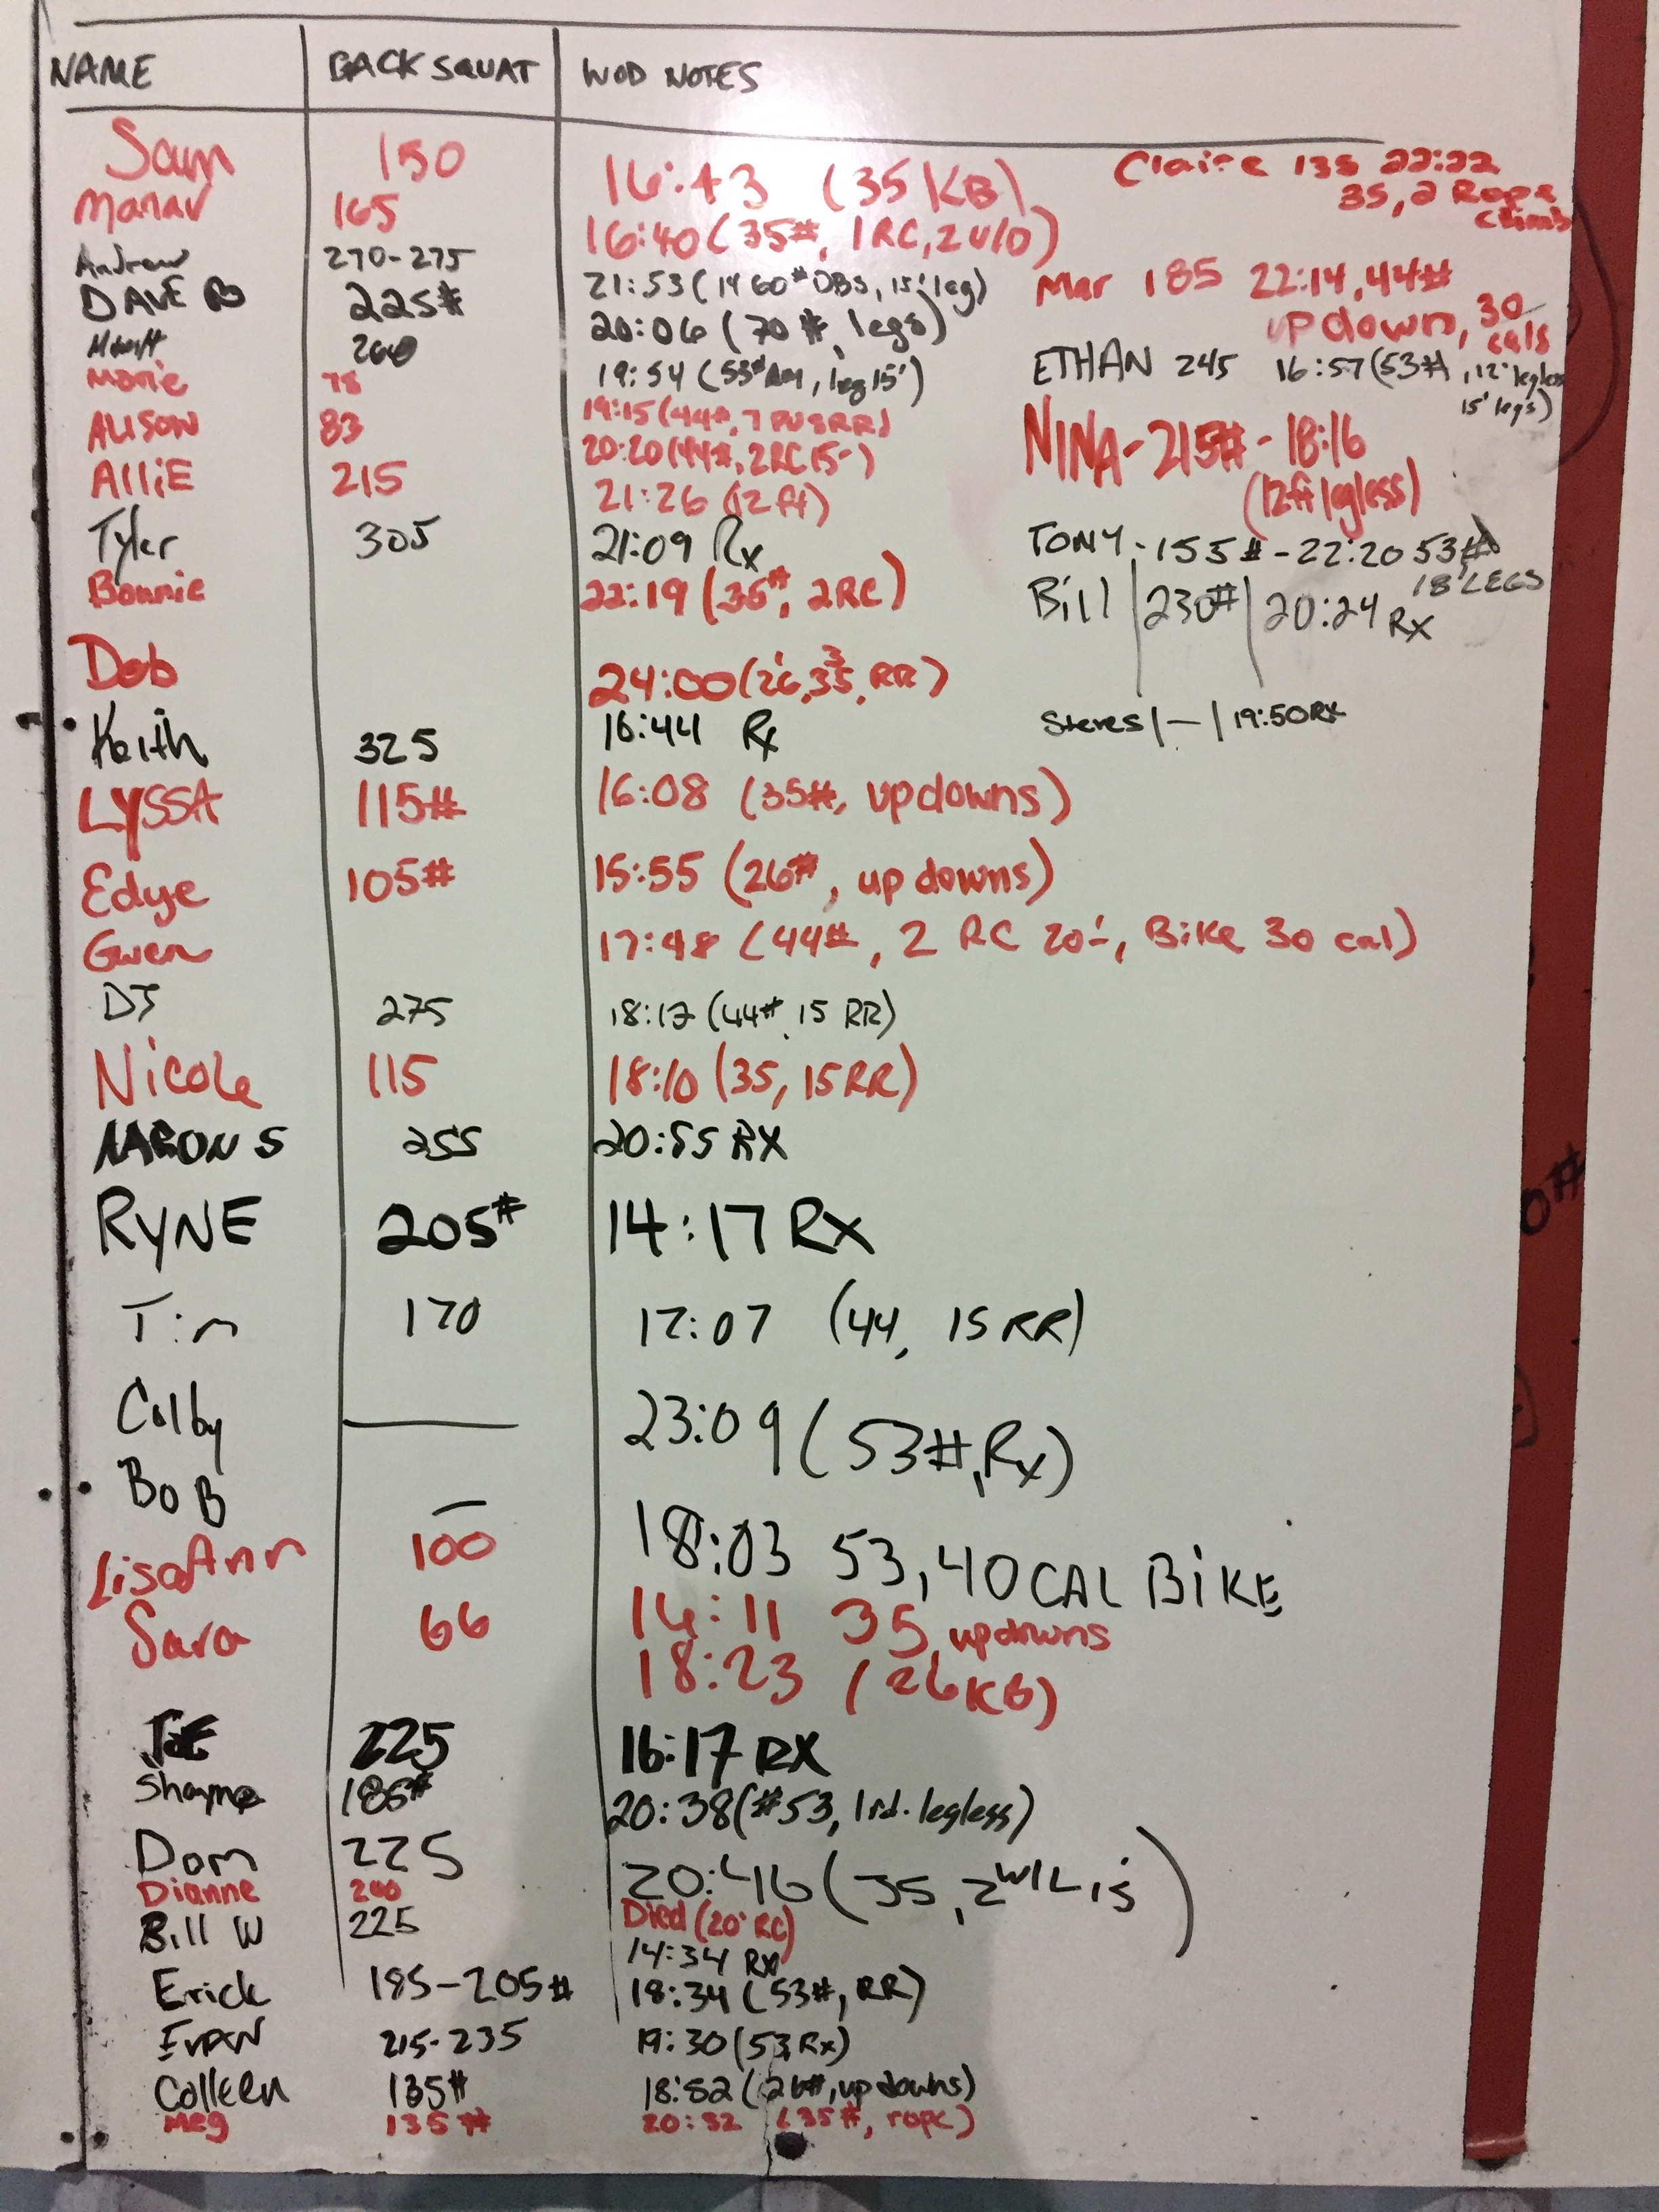 NAME BACK SQUAT WOD NOTES
Sam 150 16:43 (35 KB)
Manar 165 16:40 (35#, 1RC, 2 U/D)
Andrew 270-275 21:53 (14 60# DBS, 15' leg)
DAVE B 225# 20:06 (70#, legs)
260 19:54 (53# , leg 15')
Marie 78 19:15 (44#, 7 PU 8 RR)
ALISON 83 20:20 (44#, 2RC 15')
ALLiE 215 21:26 (12 ft)
Tyler 305 21:09 Rx
Bonnie 22:19 (35#, 2RC)
Deb 24:00 (26, 35, RR)
Keith 325 16:44 Rx
LYSSA 115# 16:08 (35#, updowns)
Edye 105# 15:55 (26#, up downs)
Gwen 17:48 (44#, 2 RC 20', Bike 30 cal)
DJ 275 18:17 (44# 15 RR)
Nicole 115 18:10 (35, 15 RR)
AARON S 255 20:55 RX
RYNE 205# 14:17 RX
Tim 170 17:07 (44, 15 RR)
Colby — 23:09 (53#, Rx)
BoB — 18:03 53, 40 CAL BiKE
LisaAnn 100 14:11 35, updowns
Sara 66 18:23 (26 KB)
JOE 225 16:17 RX
Shayne 185# 20:38 (#53, 1 rd. legless)
Dom 225 20:46 (35, 2 W/L 15')
Dianne 200 Died (20' RC)
Bill W 225 14:34 Rx
Erick 185-205# 18:34 (53#, RR)
EVAN 215-235 19:30 (53, Rx)
Colleen 135# 18:52 (26#, up downs)
Meg 135# 20:32 (35#, rope)
Claire 135 22:22
35, 2 Rope
climb
Mar 185 22:14, 44#
up down, 30
cals
ETHAN 245 16:57 (53#, 12' legless
15' legs)
NINA - 215# - 18:16
(12ft legless)
TONY - 155# - 22:20 53#
18' LEGS
Bill | 230# | 20:24 Rx
Steves | — | 19:50 RX
0#